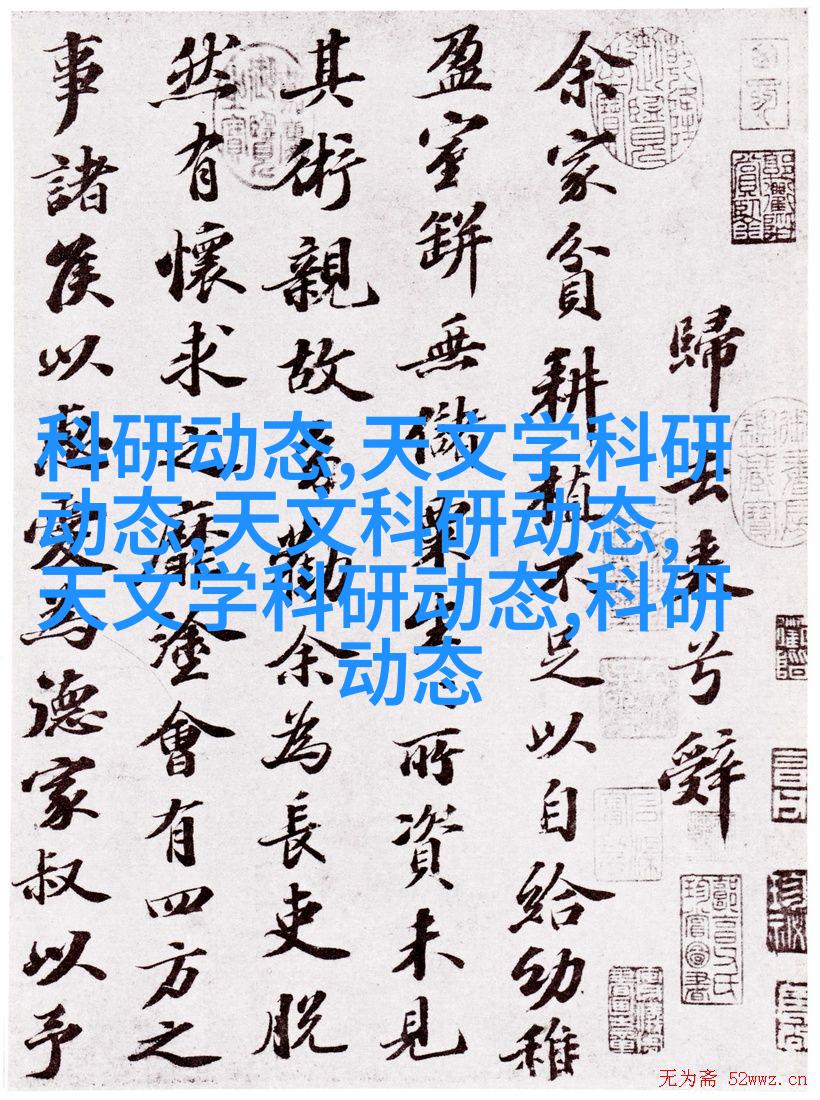 歸去来兮辭
余家貧耕植不足以自給幼稚
盈室缾無儲粟生〻所資未見
其術親故多勸余為長吏脱
然有懷求之靡塗會有四方之
事諸侯以惠愛為德家叔以予
科研动态,天文学科研
动态,天文科研动态,
天文学科研动态,科研
动态
无为斋 52wwz.cn